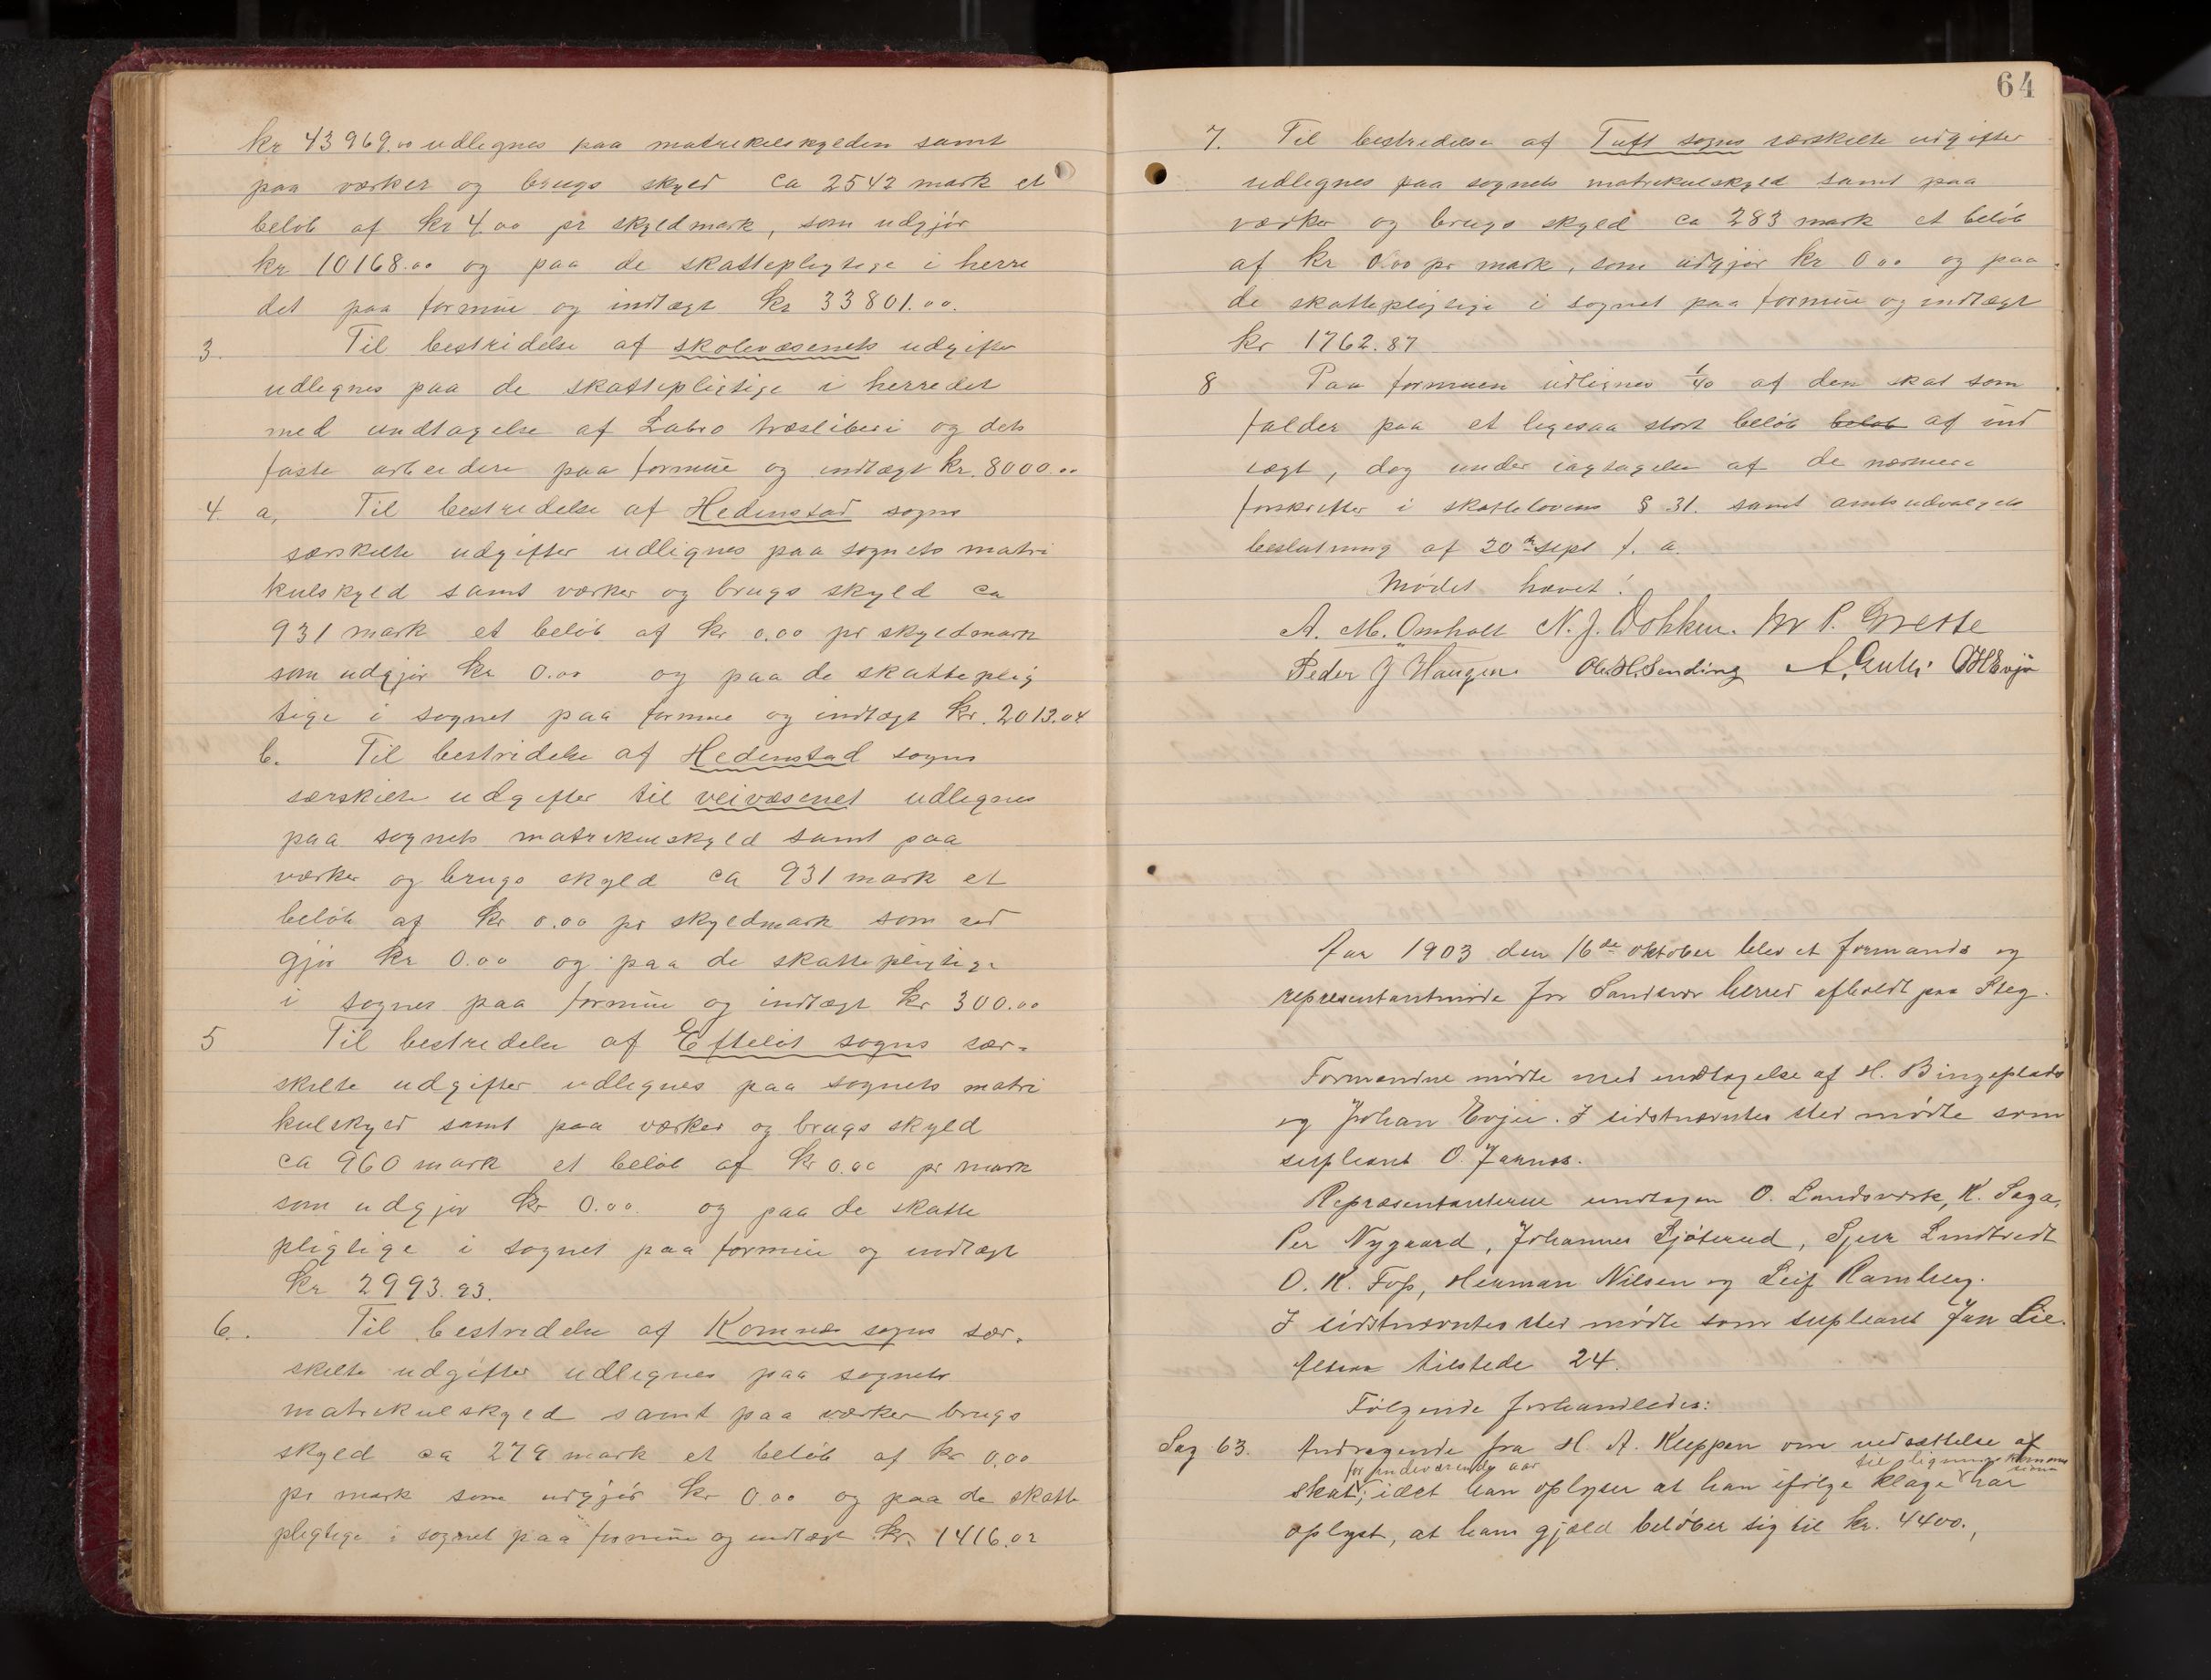 kr 43969.00 udlegnes paa matrikelskylden samt
paa værker og brugs skyld ca 2542 mark et
beløb af kr 4.00 pr skyldmark, som udgjør
kr 10168.00 og paa de skattepligtige i herre
det paa formue og indtægt kr 33801.00.
3. Til bestridelse af skolevæsenets udgifter
udlegnes paa de skattepligtige i herredet
med undtagelse af Labro træsliberi og dets
faste arbeidere paa formue og indtægt kr. 8000.00
4. a, Til bestridelse af Hedenstad sogns
særskilte udgifter udlignes paa sognets matri
kulskyld samt værker og brugs skyld ca
931 mark et beløb af kr 0.00 pr skyldmark
som udgjør kr 0.00 og paa de skatteplig
tige i sognet paa formue og indtægt kr. 2013.04
b. Til bestridelse af Hedenstad sogns
særskilte udgifter til veivæsenet udlegnes
paa sognets matrikulskyld samt paa
værker og brugs skyld ca 931 mark et
beløb af kr 0.00 pr skyldmark som ud
gjør kr 0.00 og paa de skattepligtige
i sognes paa formue og indtægt kr 300.00
5 Til bestridelse af Efteløt sogns sær-
skilte udgifter udlegnes paa sognets matri
kulskyld samt paa værker og brugs skyld
ca 960 mark et beløb af kr 0.00 pr mark
som udgjør kr 0.00. og paa de skatte
pligtige i sognet paa formue og indtægt
kr 2993.93.
6. Til bestridelse af Komnæs sogns sær-
skilte udgifter udlegnes paa sognets
matrikulskyld samt paa værker brugs
skyld ca 279 mark et beløb af kr 0.00
pr mark som udgjør kr 0.00 og paa de skatte
pligtige i sognet paa formue og indtægt kr. 1416.02
64
7. Til bestridelse af Tuft sogns særskilte udgifter
udlegnes paa sognets matrikulskyld samt paa
værker og brugs skyld ca 283 mark et beløb
af kr 0.00 pr mark, som udgjør kr 0.00 og paa
de skattepligtige i sognet paa formue og indtægt
kr 1762.87
8 Paa formuen udlignes 1/40 af den skat som
falder paa et ligesaa stort beløb beløb af ind
tægt, dog under iagtagelse af de nærmere
forskrifter i skattelovens § 31. samt amtsudvalgets
beslutning af 20de sept f. a.
Mødet hævet!
A. M. Omholt N. J. Dokken. P. Grette
Peder J Haugen Ole H. Sending A. OHEvju
Aar 1903 den 16de oktober blev et formands og
representantmøde for Sandsvær herred afholdt paa Steg.
Formændne mødte med undtagelse af H. Bingeplads
og Johan Evju. I sidstnævntes sted mødte som
supleant O. Jarnes.
Repræsentanterne undtagen O. Landsverk, K. Saga,
Per Nygaard, Johannes Sjøterud, Sjur Lindtvedt
O. K. Foss, Herman Nilsen og Leif Ramberg.
I sidstnævntes sted mødte som supleant Jan Lie.
Altsaa tilstede 24.
Følgende forhandledes:
Sag 63. Andragende fra H. A. Kleppen om nedsættelse af
for indeværende aar til lignings kommis
sion
skat, idet han oplyser at han ifølge klage har
oplyst, at hans gjæld beløber sig til kr. 4400.,